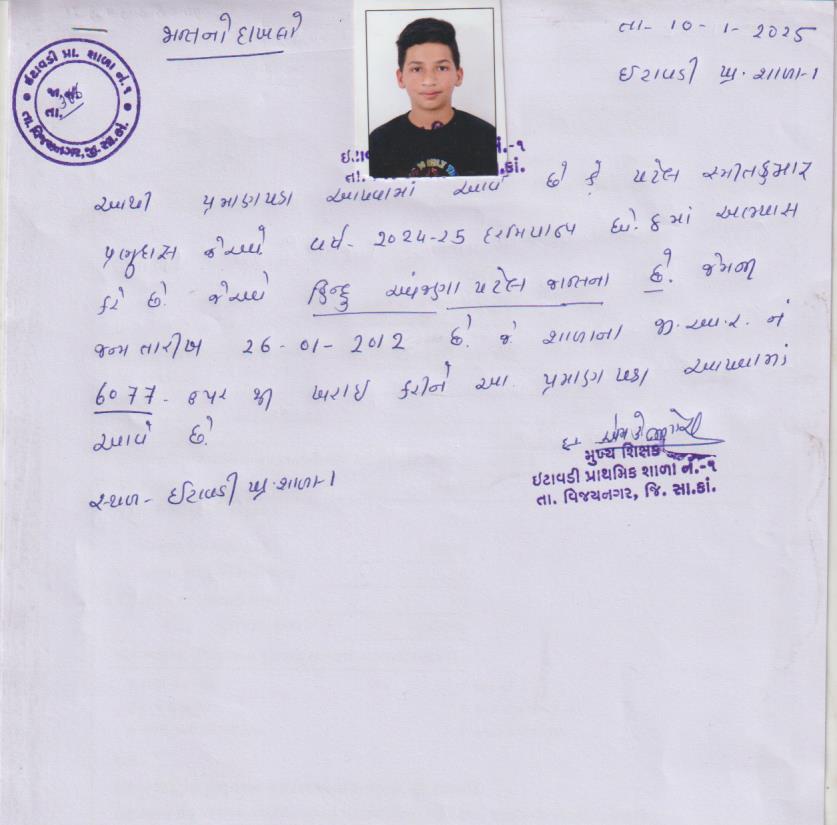 જાતિનો દાખલો
તા- 10-1-2025
ઈટાવડી પ્રા. શાળા-1
ઈટાવડી પ્રા. શાળા નં. ૧
જા.નં.
તા.
તા. વિજયનગર, જી. સા.કાં.
ઈટાવ નં.-૧
તા. કાં.
આથી પ્રમાણપત્ર આપવામાં આવે છે કે પટેલ સ્મીતકુમાર
પ્રભુદાસ જેઓ વર્ષ- 2024-25 દરમિયાન ધો. 8 માં અભ્યાસ
કરે છે. જેઓ હિન્દુ આંજણા પટેલ જાતના છે. જેમની
જન્મ તારીખ 26-01-2012 છે. જે શાળાના જી.આર. નં
6077- ઉપર થી ખરાઈ કરીને આ પ્રમાણપત્ર આપવામાં
આવે છે.
સ્થળ- ઈટાવડી પ્રા. શાળા-1
મુખ્ય શિક્ષક
ઈટાવડી પ્રાથમિક શાળા નં.-૧
તા. વિજયનગર, જિ. સા.કાં.